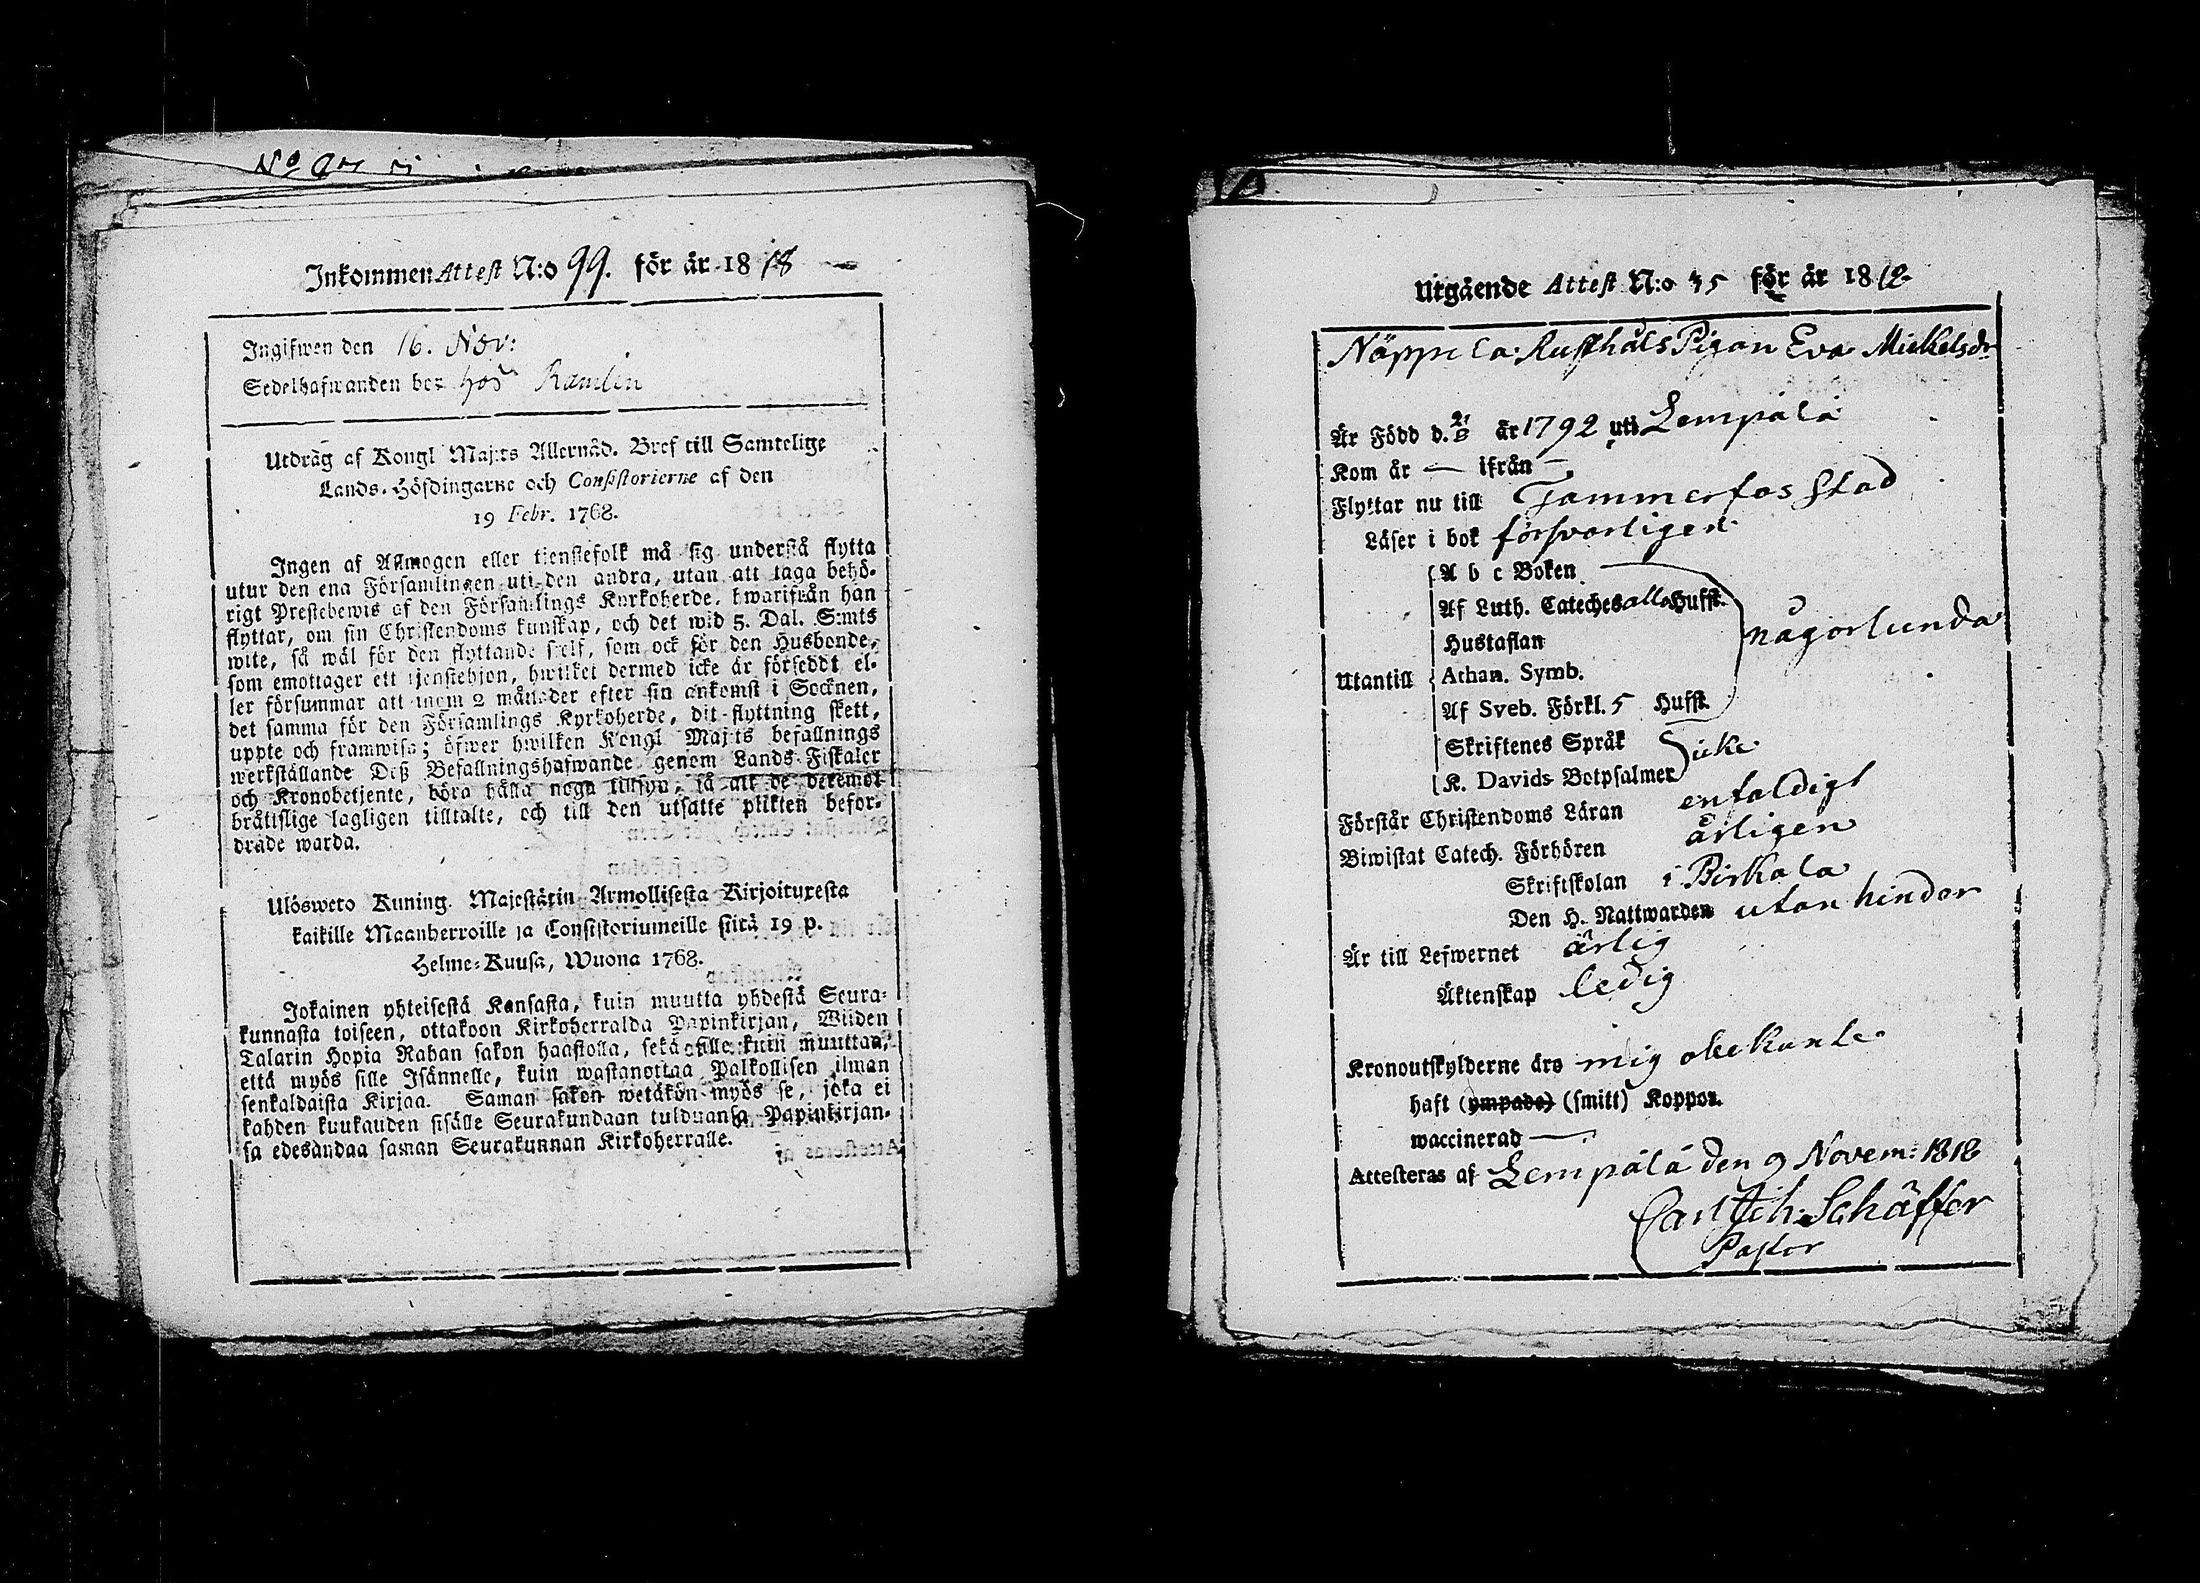 Inkommen Attest N:o 99. för år 1818
Ingifwen den 16. Nov:
Sedelhafwanden bor hos Ramlin
Utdrag af Kongl Maj:ts Allernåd. Bref till Samtelige
Lands-Höfdingarne och Consistorierne af den
19 Febr. 1768.
Ingen af Allmogen eller tienstefolk må sig understå flytta
utur den ena Församlingen uti den andra, utan att taga behö-
rigt Prestebewis af den Församlings Kyrkoherde, hwarifrån han
flyttar, om sin Christendoms kunskap, och det wid 5. Dal. S:mts
wite, så wäl för den flyttande sielf, som ock för den Husbonde,
som emottager ett tjenstehjon, hwilket dermed icke är förseddt el-
ler försummar att inom 2 månader efter sin ankomst i Socknen,
det samma för den Församlings Kyrkoherde, dit flyttning skett,
uppte och framwisa; öfwer hwilken Kongl Maj:ts befallnings
werkställande Deß Befallningshafwande genom Lands-Fiskaler
och Kronobetjente, böra hålla noga tillsyn, så att de deremot
bråttslige lagligen tilltalte, och till den utsatte plikten befor-
drade warda.
Ulösweto Kuning. Majestätin Armollisesta Kirjoituxesta
kaikille Maanherroille ja Consistoriumeille siitä 19 p.
Helme-Kuusa, Wuona 1768.
Jokainen yhteisestä Kansasta, kuin muutta yhdestä Seura-
kunnasta toiseen, ottakoon Kirkoherralda Papinkirjan, Wiiden
Talarin Hopia Rahan sakon haastolla, sekä sille kuin muuttaa,
että myös sille Isännelle, kuin wastanottaa Palkollisen ilman
senkaldaista Kirjaa. Saman sakon wetäkön myös se, joka ei
kahden kuukauden sisälle Seurakundaan tulduansa Papinkirjan-
sa edesandaa saman Seurakunnan Kirkoherralle.
Utgående Attest N:o 45 för år 1818
Näppilä Rusthåls Pigan Eva Mickelsdr
Är Född d. 21/8 år 1792 uti Lempälä
Kom år — ifrån —
Flyttar nu till Tammerfos Stad
Läser i bok försvarligen
A b c Boken
Af Luth. Cateches alla Hufst.
Hustaflan
någorlunda
Utantill Athan. Symb.
Af Sveb. Förkl. 5 Hufst.
Skriftenes Språk
icke
K. Davids Botpsalmer
Förstår Christendoms Läran enfaldigt
Biwistat Catech. Förhören årligen
Skriftskolan i Birkala
Den H. Nattwarden utan hinder
Är till Lefwernet ärlig
Äktenskap ledig
Kronoutskylderne äro mig obekante
haft (ympade) (smitt) Koppor.
waccinerad —
Attesteras af Lempälä den 9 Novem: 1818
Carl Joh: Schäffer
Pastor